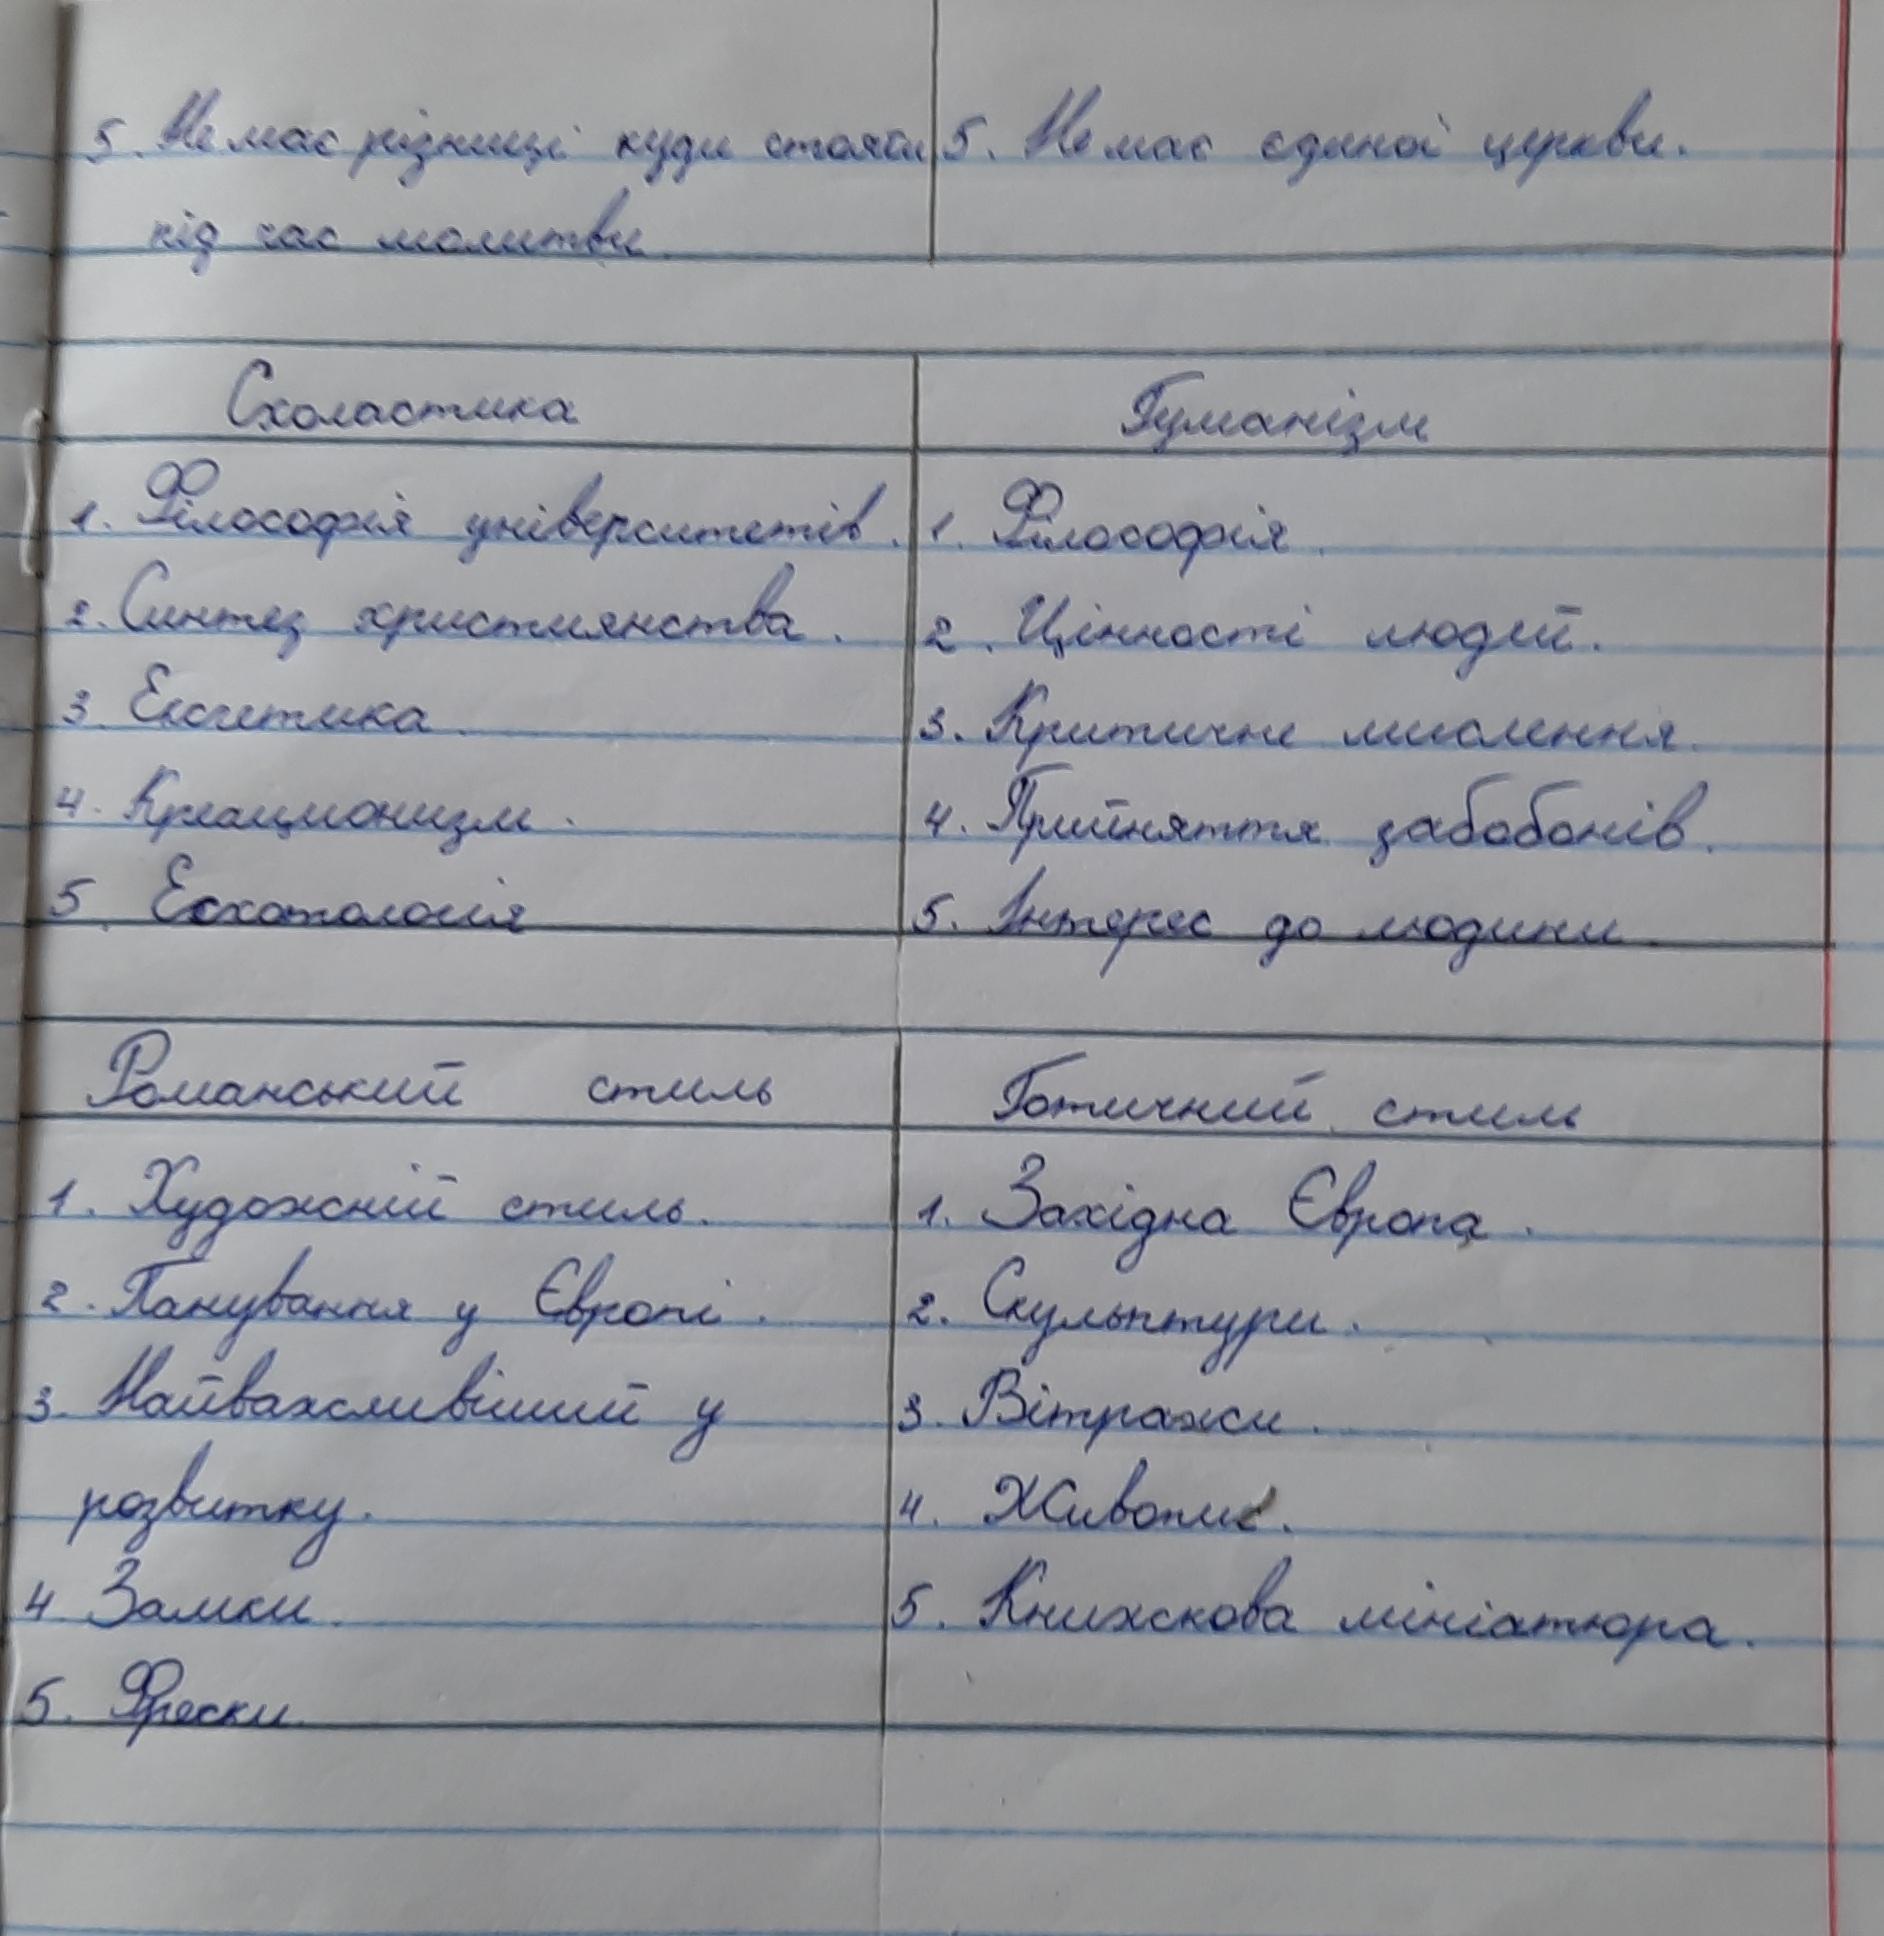 5. Немає різниці куди стояти
під час молитви.
5. Немає єдиної церкви.
Схоластика
1. Філософія університетів.
2. Синтез християнства.
3. Ексгетика.
4. Креационизм.
5. Есхотологія
Гуманізм
1. Філософія.
2. Цінності людей.
3. Критичне мислення.
4. Прийняття забобонів.
5. Інтерес до людини.
Романський стиль
1. Художній стиль.
2. Панування у Європі.
3. Найважливіший у
розвитку.
4 Замки.
5. Фрески.
Готичний стиль
1. Західна Європа.
2. Скульптури.
3. Вітражи.
4. Живопис.
5. Книжкова мініатюра.